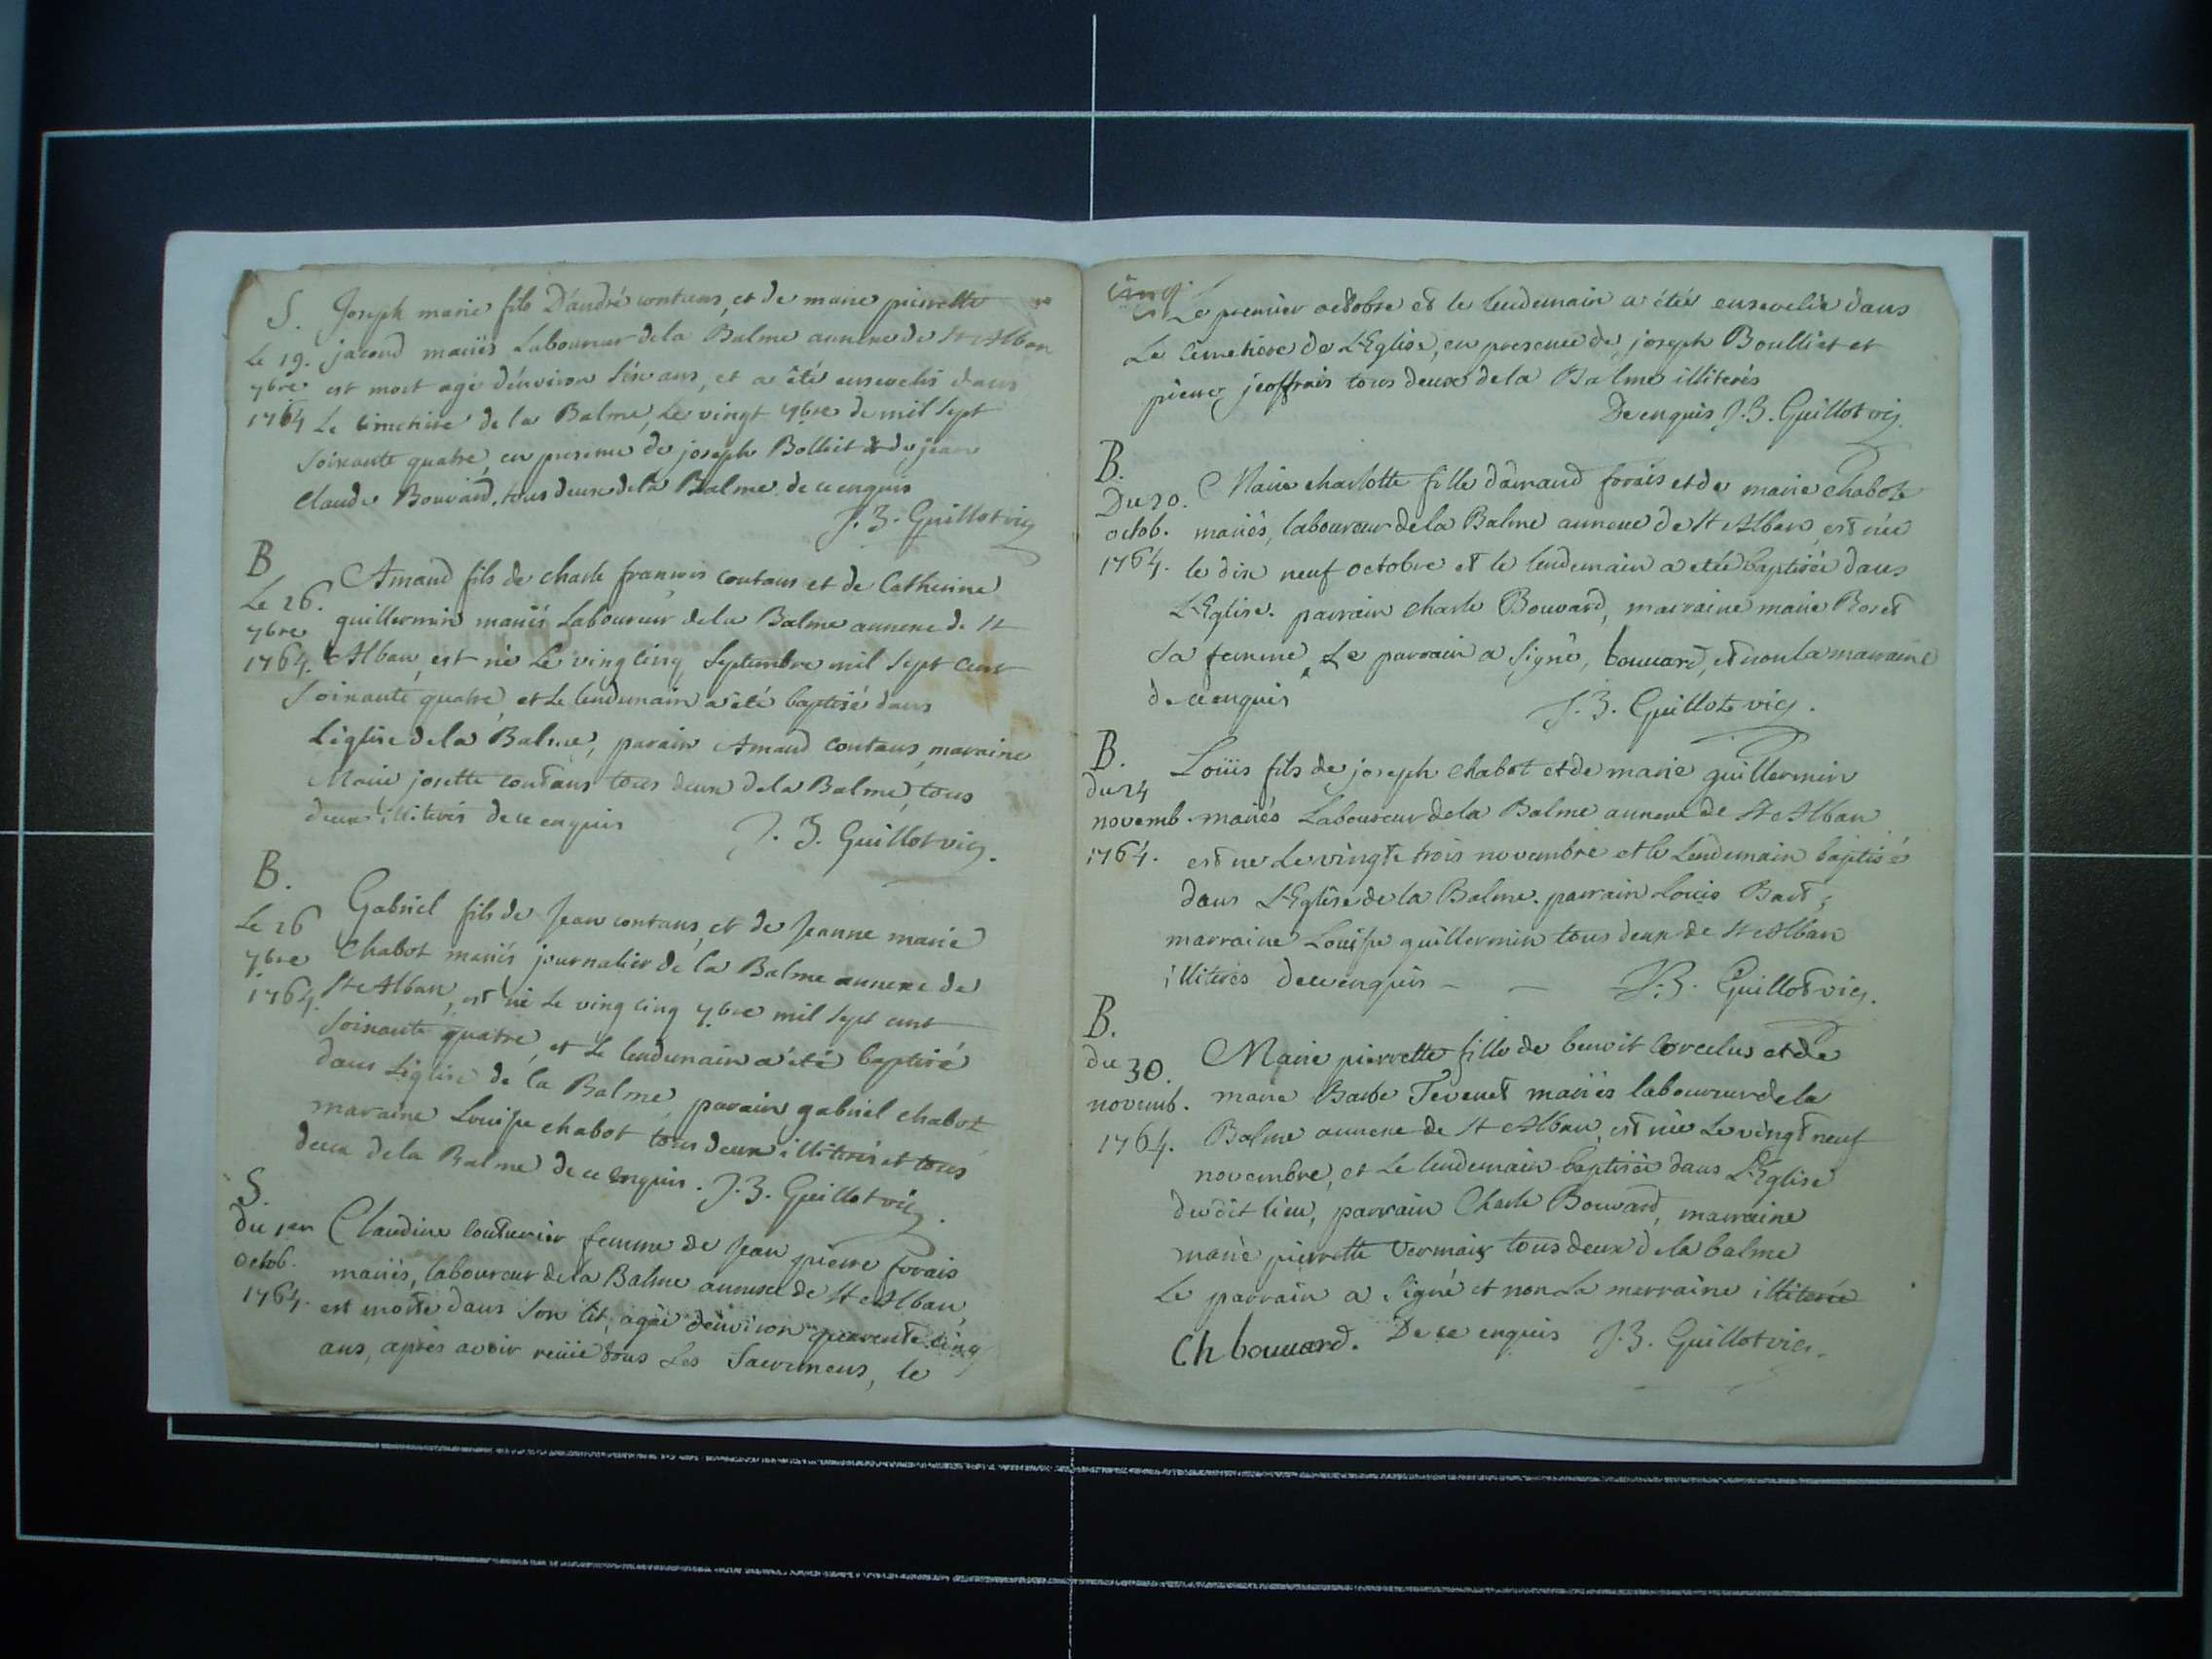 S. Joseph marie fils D'andré contans, et de marie pierrette
Le 19. jacond mariés Laboureur dela Balme annexe de St Alban
7bre est mort agé d'environ six ans, et a été ensevelis dans
1764 Le Cimetiere de la Balme, Le vingt 7bre de mil sept
soixante quatre, en presence de joseph Bolliet & de jean
Claude Bouvard, tous deux dela Balme de ce enquis
J. B. Guillot vic
B
Le 26. Amand fils de charle françois contans et de Catherine
7bre guillermin mariés Laboureur dela Balme annexe de St
1764. Alban, est né Le ving cinq Septembre mil sept cent
soixante quatre, et Le lendemain a été baptisé dans
L'église dela Balme, parain Amand contans, maraine
Marie josette contans tous deux dela Balme, tous
deux illiterés de ce enquis J. B. Guillot vic.
B.
Le 26 Gabriel fils de Jean contans, et de Jeanne marie
7bre Chabot mariés journalier de la Balme annexe de
1764. St Alban, est né Le ving cinq 7bre mil sept cent
soixante quatre, et Le lendemain a été baptisé
dans L'église de la Balme, parain gabriel chabot
maraine Louise chabot tous deux illiterés et tous
deux dela Balme de ce enquis. J. B. Guillot vic.
S.
du 1er Claudine Couturier femme de Jean pierre forais
octob. mariés, laboureur dela Balme annexe de St Alban,
1764. est morte dans son lit, agée d'environ quarente cinq
ans, après avoir reçüe tous Les Sacremens, le
cinq
Le premier octobre et le lendemain a étée ensevelie dans
Le Cimetiere de L'Eglise, en presence de joseph Boulliet et
pierre jeoffrais tous deux dela Balme illiterés
De ce enquis J. B. Guillot vic.
B.
Du 20. Marie charlotte fille d'amand forais et de marie Chabot
octob. mariés, laboureur dela Balme annexe de St Alban, est née
1764. le dix neuf octobre et le lendemain a etée baptisée dans
L'Eglise. parrain charle Bouvard, marraine marie Roset
sa femme, Le parrain a signé, bouuard, et non la marraine
de ce enquis J. B. Guillot vic.
B.
du 24 Loüis fils de joseph Chabot et de marie guillermin
novemb. mariés Laboureur dela Balme annexe de St Alban
1764. est ne Le vingt trois novembre et le Lendemain baptisé
dans L'Eglise de la Balme. parrain Louis Bart,
marraine Louise guillermin tous deux de St Alban
illiterés de ce enquis - - J. B. Guillot vic.
B.
du 30. Marie pierrette fille de benoit Corcelus et de
novemb. marie Barbe Tevenet mariés laboureur dela
1764. Balme annexe de St Alban, est née Le vingt neuf
novembre, et Le lendemain baptisée dans L'Eglise
du dit lieu, parrain Charle Bouvard, marraine
marie pierrette Vermaix tous deux dela balme
Le parrain a signé et non La marraine illiterée
Ch bouuard. De ce enquis J. B. Guillot vic.